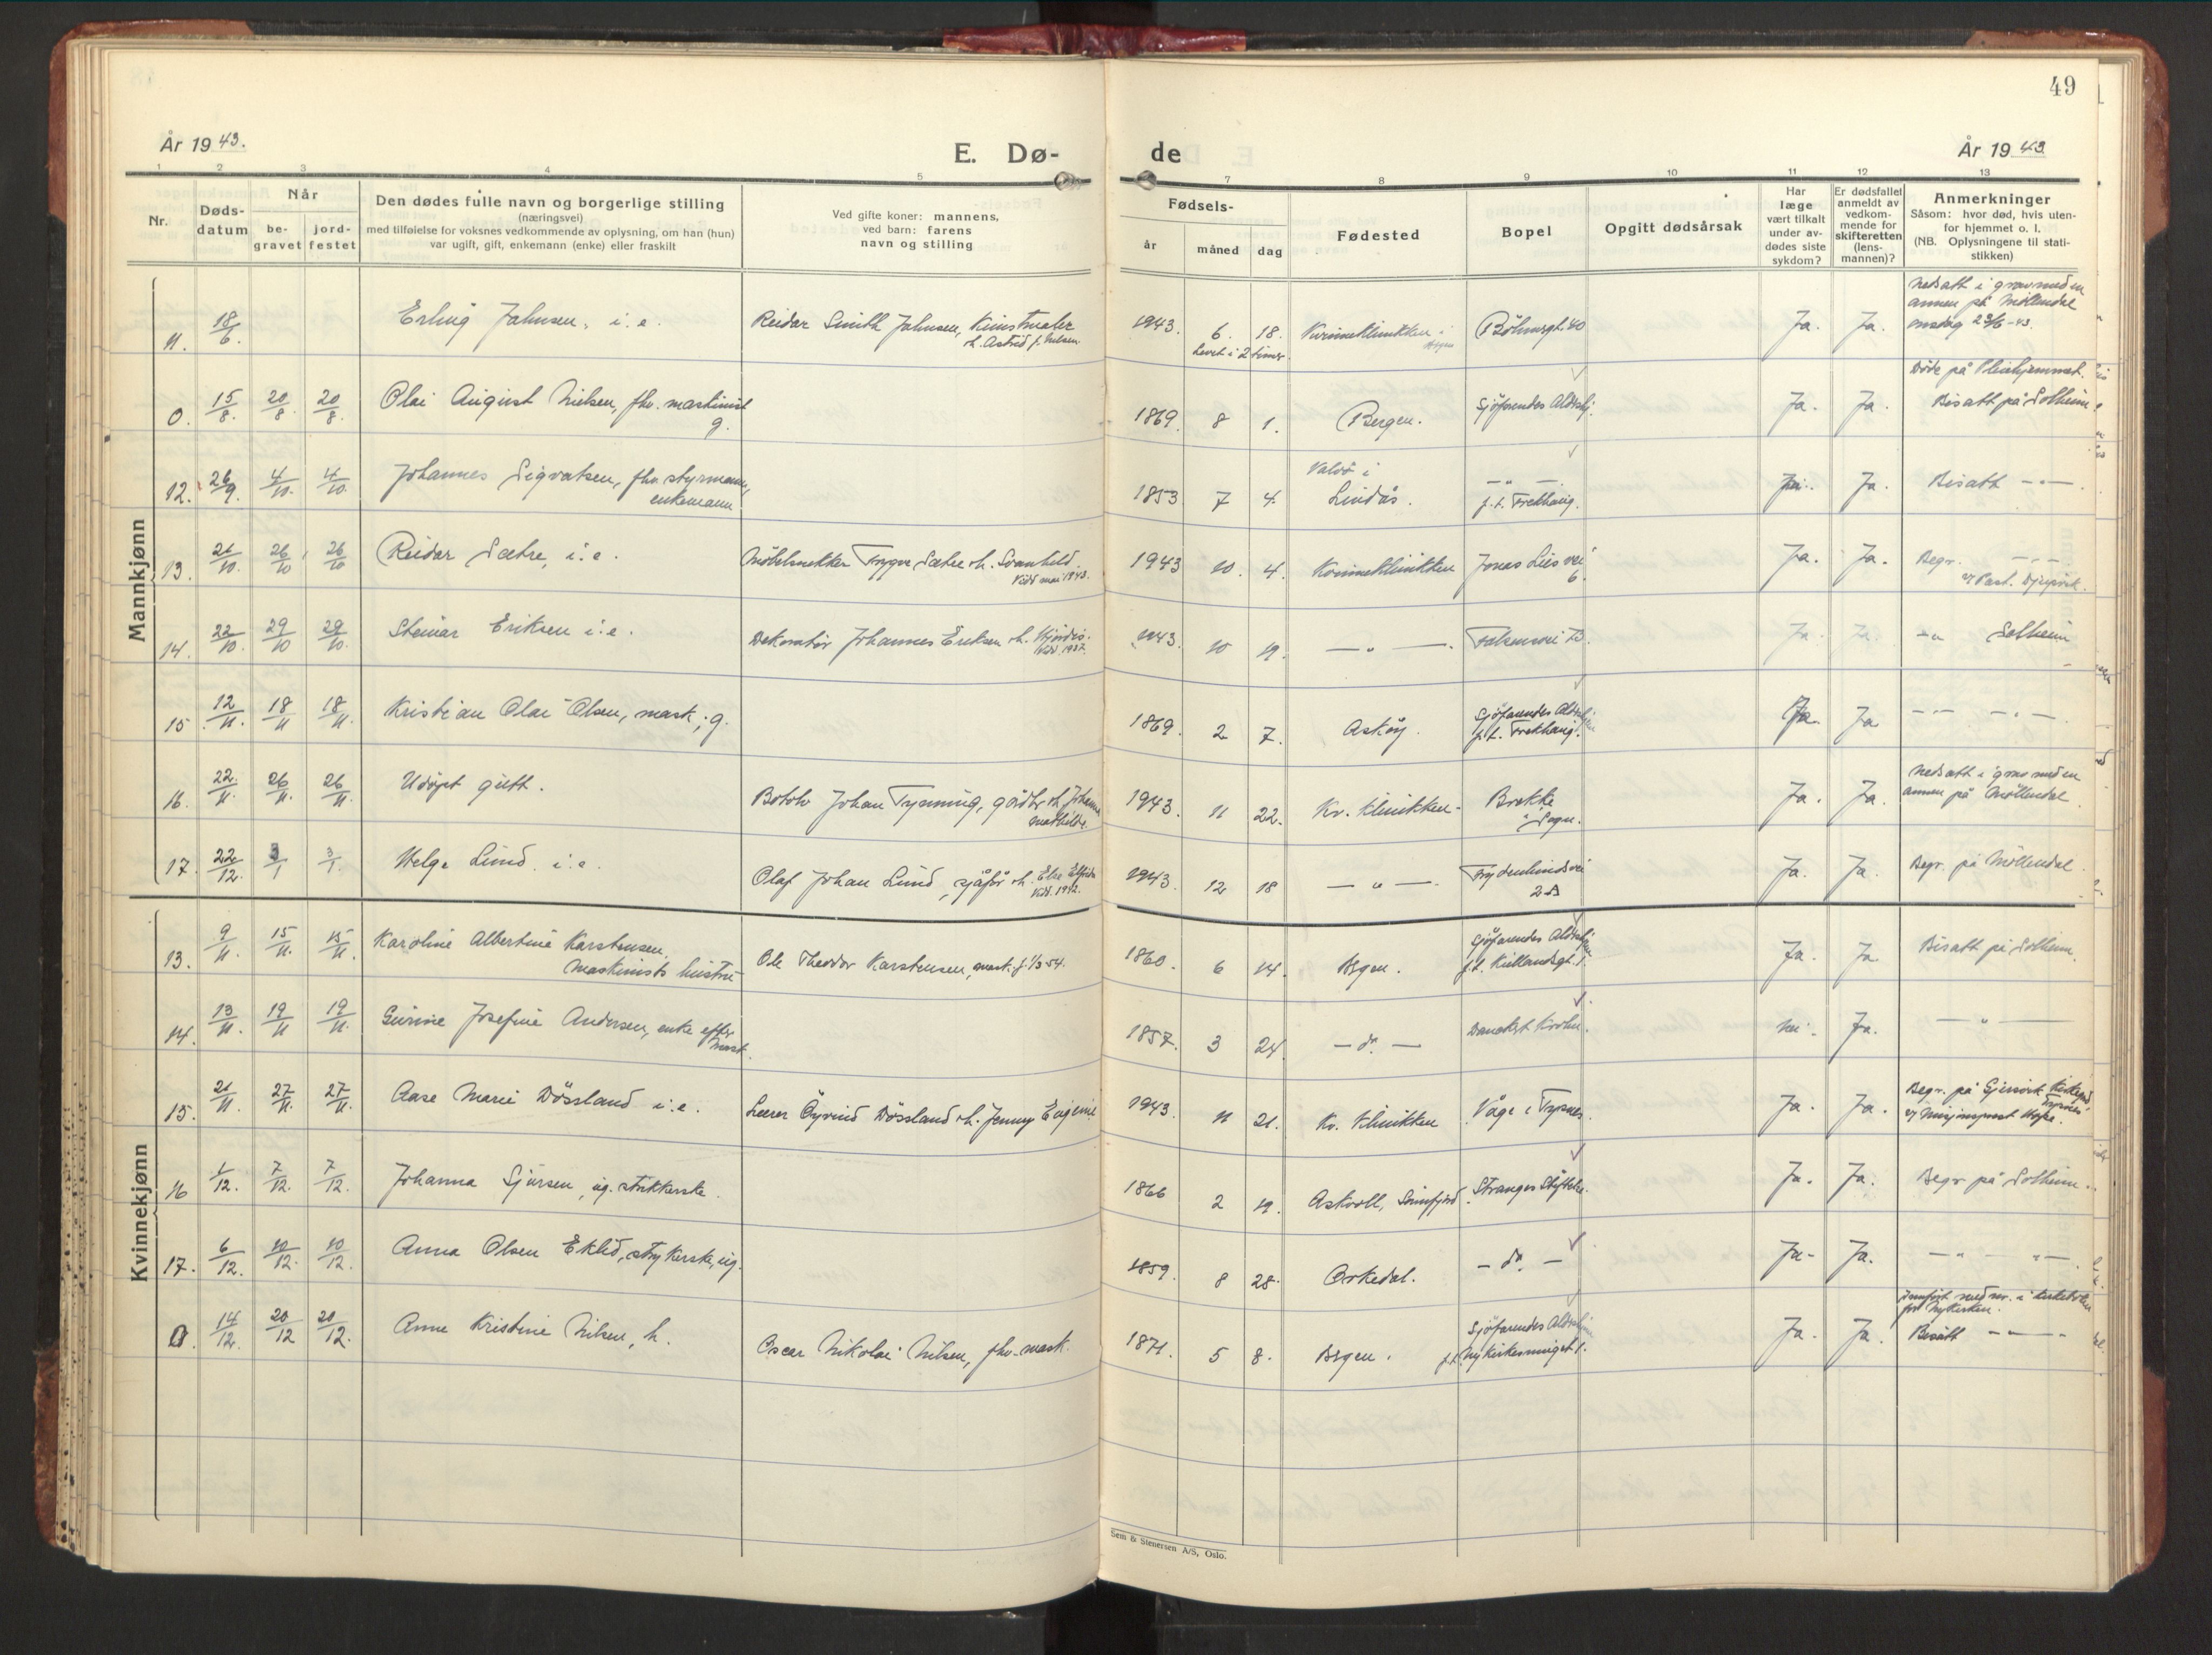 49
År 1943.
E. Dø-
de
År 1943
1 2 3 4 5 7 8 9 10 11 12 13
Nr.
Døds-
datum
Når
be-
gravet
jord-
festet
Den dødes fulle navn og borgerlige stilling
(næringsvei)
med tilføielse for voksnes vedkommende av oplysning, om han (hun)
var ugift, gift, enkemann (enke) eller fraskilt
Ved gifte koner: mannens,
ved barn: farens
navn og stilling
Fødsels-
år
måned
dag
Fødested
Bopel
Opgitt dødsårsak
Har
læge
vært tilkalt
under av-
dødes siste
sykdom?
Er dødsfallet
anmeldt av
vedkom-
mende for
skifteretten
(lens-
mannen)?
Anmerkninger
Såsom: hvor død, hvis uten-
for hjemmet o. l.
(NB. Oplysningene til stati-
stikken)
Mannkjønn
11. 18/6 Erling Jahnsen, i.e. Reidar Smith Jahnsen, Kunstmaler
h. Astrid f. Nilsen.
1943. 6. 18. Kvinneklinikken i Bergen
Levet i 2 timer.
Böhmsgt. 40 Ja. Ja.
Nedsatt i grav med en
annen på Möllendal
onsdag 23/6-43.
0. 15/8. 20/8. 20/8. Olai August Nielsen, fhv. maskinist
g.
1869. 8 1. Bergen. Sjöfarendes Aldershj. Ja. Ja.
Döde på Pleiehjemmet.
Bisatt på Solheim
12. 26/9. 4/10. 4/10. Johannes Sigvatsen, fhv. styrmann,
enkemann
1853 7 4. Valdö i
Lindås. - " - f.t. Frekhaug. Ja. Ja. Bisatt - " -
13. 21/10. 26/10 26/10 Reidar Sætre, i.e. Möbelsnekker Trygve Sætre h. Svanhild.
Vidd mai 1943.
1943 10. 4. Kvinneklinikken Jonas Lies vei
6. Ja. Ja. Begr. - " -
14. 22/10. 29/10 29/10. Steinar Eriksen i.e. Dekoratör Johannes Eriksen h. Hjördis.
Vidd. 1937.
1943. 10 19. - " - Ja. Ja. - " Solheim
15 12/11. 18/11 18/11. Kristian Olai Olsen, mask; g.
1869. 2 7. Asköy. Sjöfarendes Aldershj
f.t. Frekhaug. Ja. Ja - " - - " -
16. 22/11. 26/11. 26/11. Udöpt gutt. Botolv Johan Tynning, gårdbr. h. Johanna
Mathilde.
1943. 11 22. Kv. klinikken. Brekke
i Sogn. Ja. Ja.
Nedsatt i grav med en
annen på Möllendal
17. 22/12. 3/1 3/1. Helge Lund. i.e. Olaf Johan Lund, sjåför h. Else Elfrida
Vidd. 1942.
1943. 12 18 - " - Frydenlundsvei
2 B Ja. Ja. Begr. på Möllendal
Kvinnekjønn
13. 9/11. 15/11. 15/11. Karoline Albertine Karstensen,
Maskinists hustru
Ole Theodor Karstensen, mask. f. 1/3 54.
1860. 6 14. Bgen. Sjöfarendes Aldershj
f.t. Kiellandsgt. 1. Ja. Ja Bisatt på Solheim.
14. 13/11. 19/11 19/11. Gurine Josefine Andersen, enke efter
mask.
1857. 3 24 - do. - Danckert Krohn. nei. Ja. - " -
15. 21/11. 27/11. 27/11. Aase Marie Dössland i.e. Lærer Öyvind Dössland h. Jenny Eugenie
1943. 11 21. Kv. klinikken Våge i Tysnes. Ja. Ja.
Begr. på Gjersvik kirkegård
Tysnes.
16 1/12. 7/12. 7/12. Johanna Sjursen, ug. strikkerske.
1866 2 19. Askvoll, Sunnfjord. Stranges Stiftelse. Ja. Ja. Begr på Solheim.
17. 6/12. 10/12. 10/12. Anna Olsen Eklid, strykerske, ug.
1859. 8 28. Orkedal. - do. - Ja. Ja. - " - - " -
0. 14/12. 20/12 20/12. Anne Kristine Nilsen, h. Oscar Nikolai Nilsen, fhv. mask.
1871. 5 8. Bgen. Sjöfarendes Aldershj
f.t. Nykirkesmuget 1. Ja. Ja.
Jemfört med nr. i kirkeboken
for Nykirken.
Bisatt - " -
Sem & Stenersen A/S, Oslo.